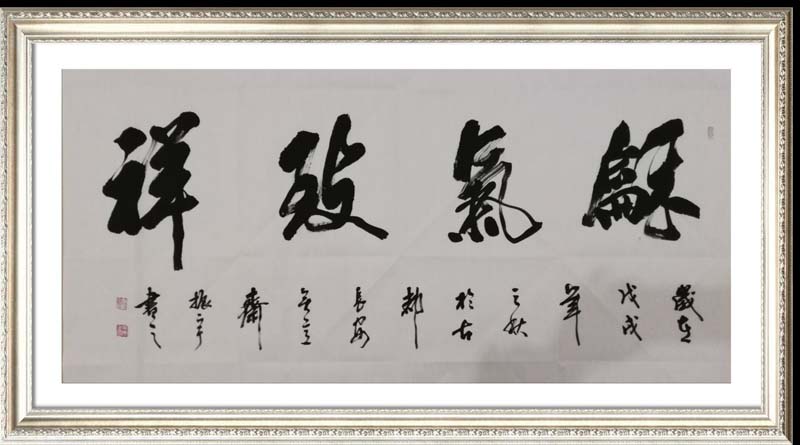 龢氣致祥
歲在
戊戌
年
之秋
於古
都
長安
齋
振
書之